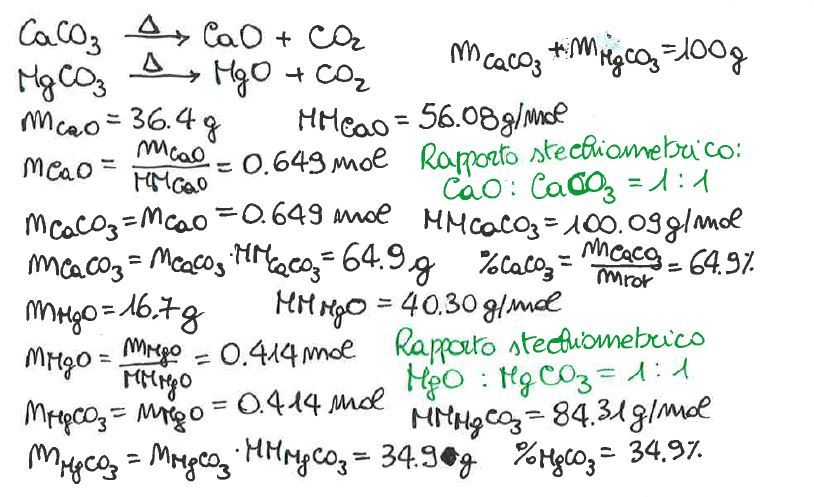 CaCO₃ —Δ→ CaO + CO₂
MgCO₃ —Δ→ MgO + CO₂
m CaCO₃ + m MgCO₃ = 100 g
m CaO = 36.4 g MM CaO = 56.08 g/mol
n CaO = m CaO / MM CaO = 0.649 mol
Rapporto stechiometrico:
CaO : CaCO₃ = 1 : 1
n CaCO₃ = n CaO = 0.649 mol MM CaCO₃ = 100.09 g/mol
m CaCO₃ = n CaCO₃ · MM CaCO₃ = 64.9 g % CaCO₃ = m CaCO₃ / m TOT = 64.9%
m MgO = 16.7 g MM MgO = 40.30 g/mol
n MgO = m MgO / MM MgO = 0.414 mol
Rapporto stechiometrico
MgO : MgCO₃ = 1 : 1
n MgCO₃ = n MgO = 0.414 mol MM MgCO₃ = 84.31 g/mol
m MgCO₃ = n MgCO₃ · MM MgCO₃ = 34.9 g % MgCO₃ = 34.9%